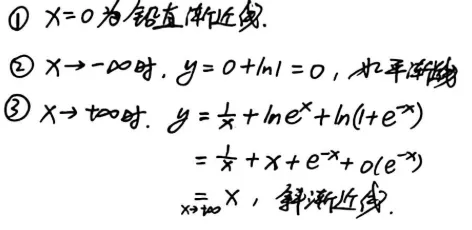 ① x=0为铅直渐近线.
② x→-∞时. y=0+ln1=0, 水平渐近线
③ x→+∞时. y=1/x+lne^x+ln(1+e^-x)
=1/x+x+e^-x+o(e^-x)
= x→+∞ x, 斜渐近线.